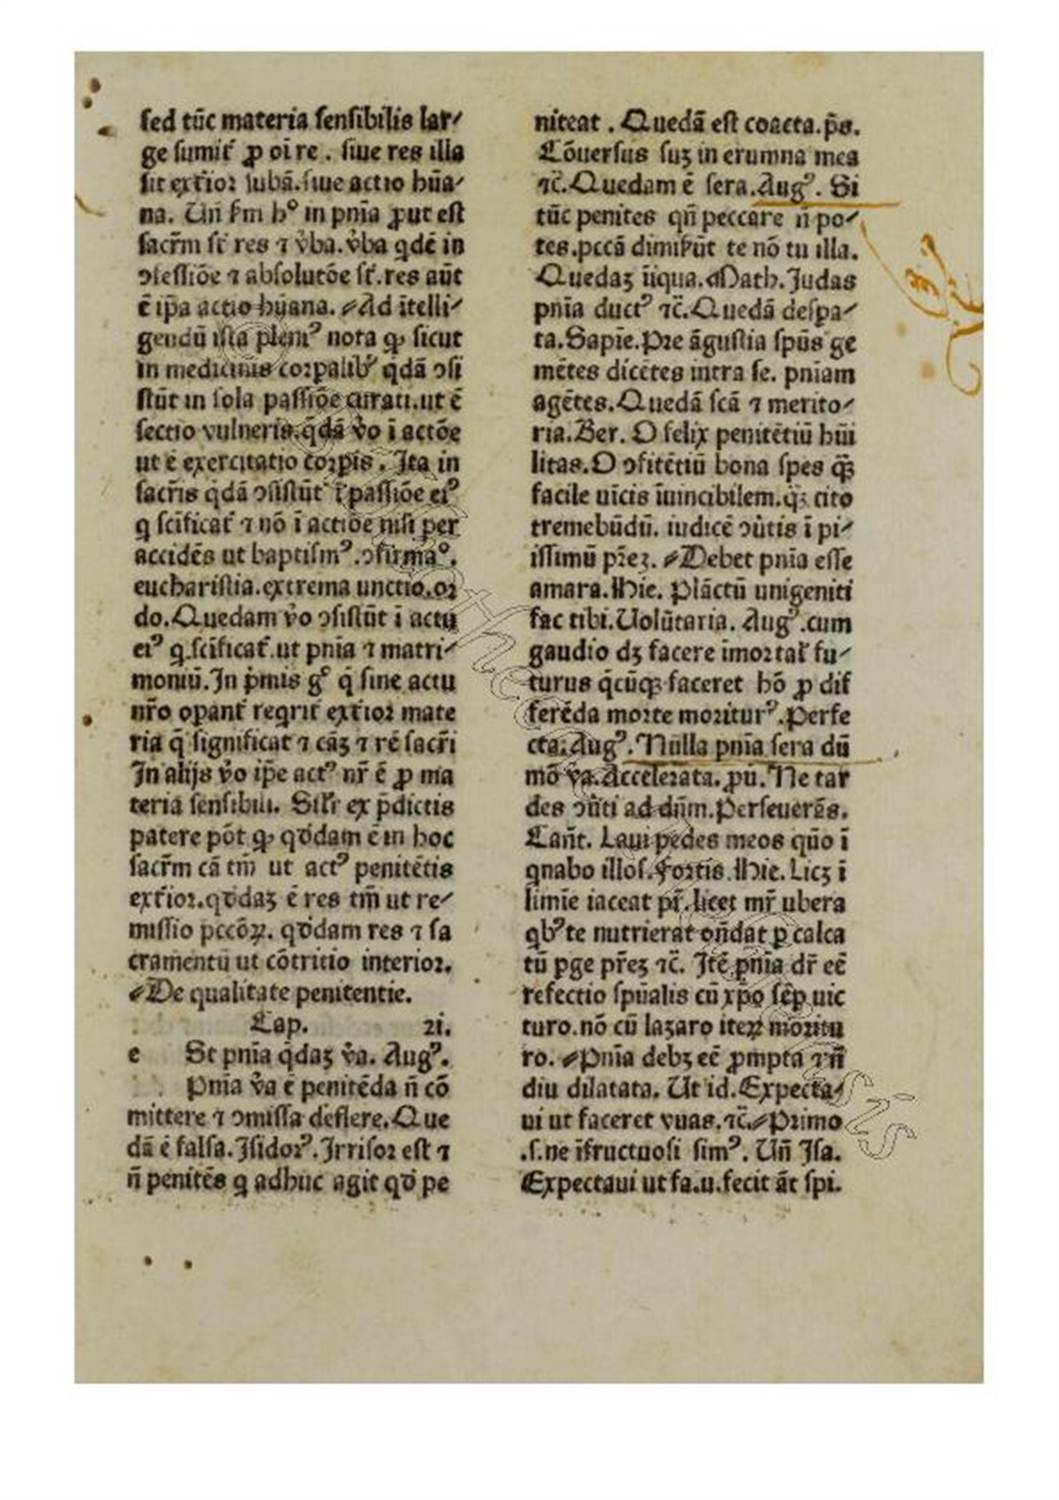 sed tūc materia sensibilis lar⸗
ge sumit᷑ ꝓ oi re . siue res illa
sit ext᷑ior subā.siue actio hūa⸗
na. Uñ s̄m hꝰ in pnīa ꝓut est
sacr̄m st᷑ res ⁊ v̓ba.v̓ba qdē in
ꝯfessiōe ⁊ absolutōe st᷑.res aūt
ē ip̄a actio hūana. Ad ītelli⸗
gendū ista pleniꝰ nota ꝙ sicut
in medicinis corꝑalibꝰ q̄dā ꝯsi
stūt in sola passiōe curati.ut ē
sectio vulneris.q̄dā v̓o ī actōe
ut ē exercitatio corꝑis . Ita in
sacr̄is q̄dā ꝯsistūt ī passiōe eiꝰ
q scīficat᷑ ⁊ nō ī actiōe nisi per
accidēs ut baptismꝰ.ꝯfirmaº.
eucharistia.extrema unctio.or
do.Quedam v̓o ꝯsistūt ī actu
eiꝰ q scīficat᷑.ut pnīa ⁊ matri⸗
moniū.In p̓mis gº q̄ sine actu
nr̄o oꝑant᷑ reqrit᷑ ext᷑ior mate
ria q̄ significat ⁊ cāꝫ ⁊ rē sacr̄i
In alijs v̓o ip̄e actꝰ nr̄ ē ꝓ ma
teria sensibili. Silr̄ ex p̄dictis
patere pōt ꝙ qv̄dam ē in hoc
sacr̄m cā tm̄ ut actꝰ penitētis
ext᷑ior.qv̄daꝫ ē res tm̄ ut re⸗
missio pccōꝝ. qv̄dam res ⁊ sa
cramentū ut cōtritio interior.
De qualitate penitentie.
Cap. 21.
e St pnīa q̄daꝫ v̓a. Augꝰ.
Pnīa v̓a ē penitēda n̄ cō
mittere ⁊ ꝯmissa deflere.Que
dā ē falsa.Isidorꝰ.Irrisor est ⁊
n̄ penitēs q adhuc agit qv̄ pe
niteat . Quedā est coacta.p̄s.
Cōuersus suꝫ in erumna mea
⁊c̄.Quedam ē sera.Augꝰ. Si
tūc penites qn̄ peccare n̄ po⸗
tes.pccā dimis̄ūt te nō tu illa.
Quedaꝫ īiqua.Math.Judas
pnīa ductꝰ ⁊c̄.Quedā despa⸗
ta.Sapīe.Pre āgustia sp̄us ge
mētes dicētes intra se. pnīam
agētes.Quedā scā ⁊ merito⸗
ria.Ber. O felix penitētiū hūi
litas.O ꝯfitētiū bona spes q̄ꝫ
facile uīcis īuincibilem.qꝫ cito
tremebūdū. iudicē ꝯūtis ī pi⸗
issimū pr̄eꝫ. Debet pnīa esse
amara.Hie. Plāctū unigeniti
fac tibi.Uolūtaria. Augꝰ.cum
gaudio dꝫ facere īmortal᷑ fu⸗
turus q̄cūqꝫ faceret hō ꝓ dif
ferēda morte moriturꝰ.Perfe
cta.Augꝰ.Nulla pnīa sera dū
mō v̓a.Accelerata.ꝓu̓.Ne tar
des ꝯūti ad dn̄m.Perseuerās.
Can̄t. Laui pedes meos quō ī
qnabo illos.Fortis.Hie.Licꝫ ī
limīe iaceat pr̄.licet mr̄ ubera
qbꝰ te nutrierat on̄dat ꝑ calca
tū ꝑge pr̄eꝫ ⁊c̄. Itē pnīa dr̄ eē
refectio sp̄ualis cū xp̄o sēꝑ uic
turo.nō cū laꝫaro iteꝝ moritu
ro. Pnīa debꝫ eē ꝓmpta ⁊ n̄
diu dilatata. Ut id.Expecta⸗
ui ut faceret vuas.⁊c̄.Primo
.s.ne īfructuosi simꝰ. Uñ Isa.
Expectaui ut fa.u.fecit āt spi.